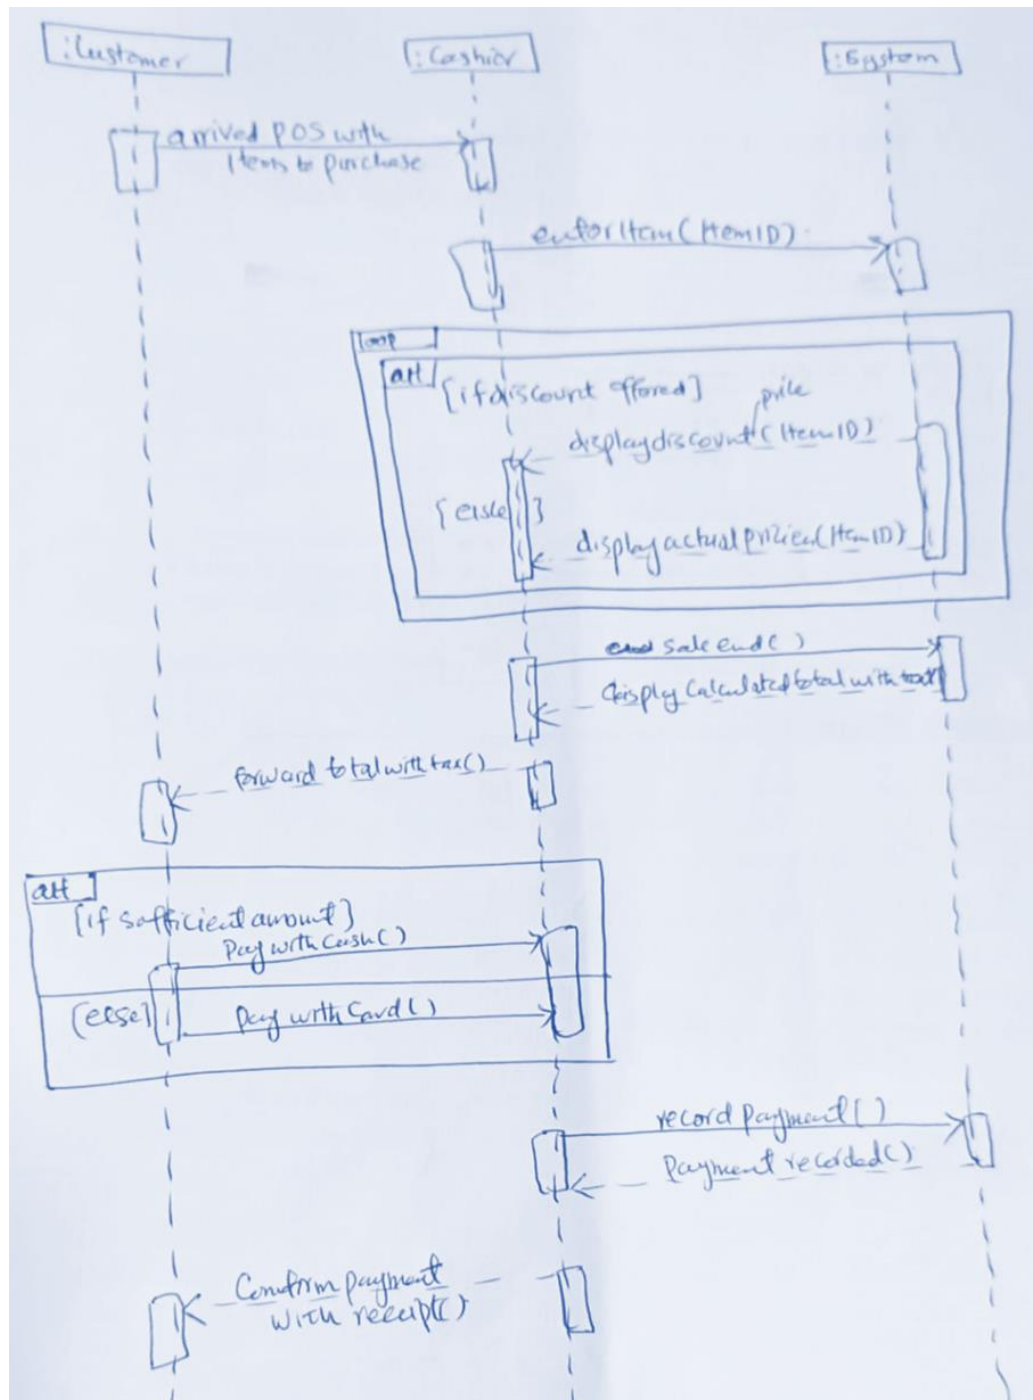 :Customer
:Cashier
:System
arrived POS with
Items to purchase
enterItem(ItemID)
loop
alt
[if discount offered]
price
displaydiscount(ItemID)
[else]
displayactualprice(ItemID)
sale end()
display calculated total with tax()
forward total with tax()
alt
[if sufficient amount]
Pay with Cash()
[else]
pay with Card()
record payment()
Payment recorded()
Confirm payment
with receipt()